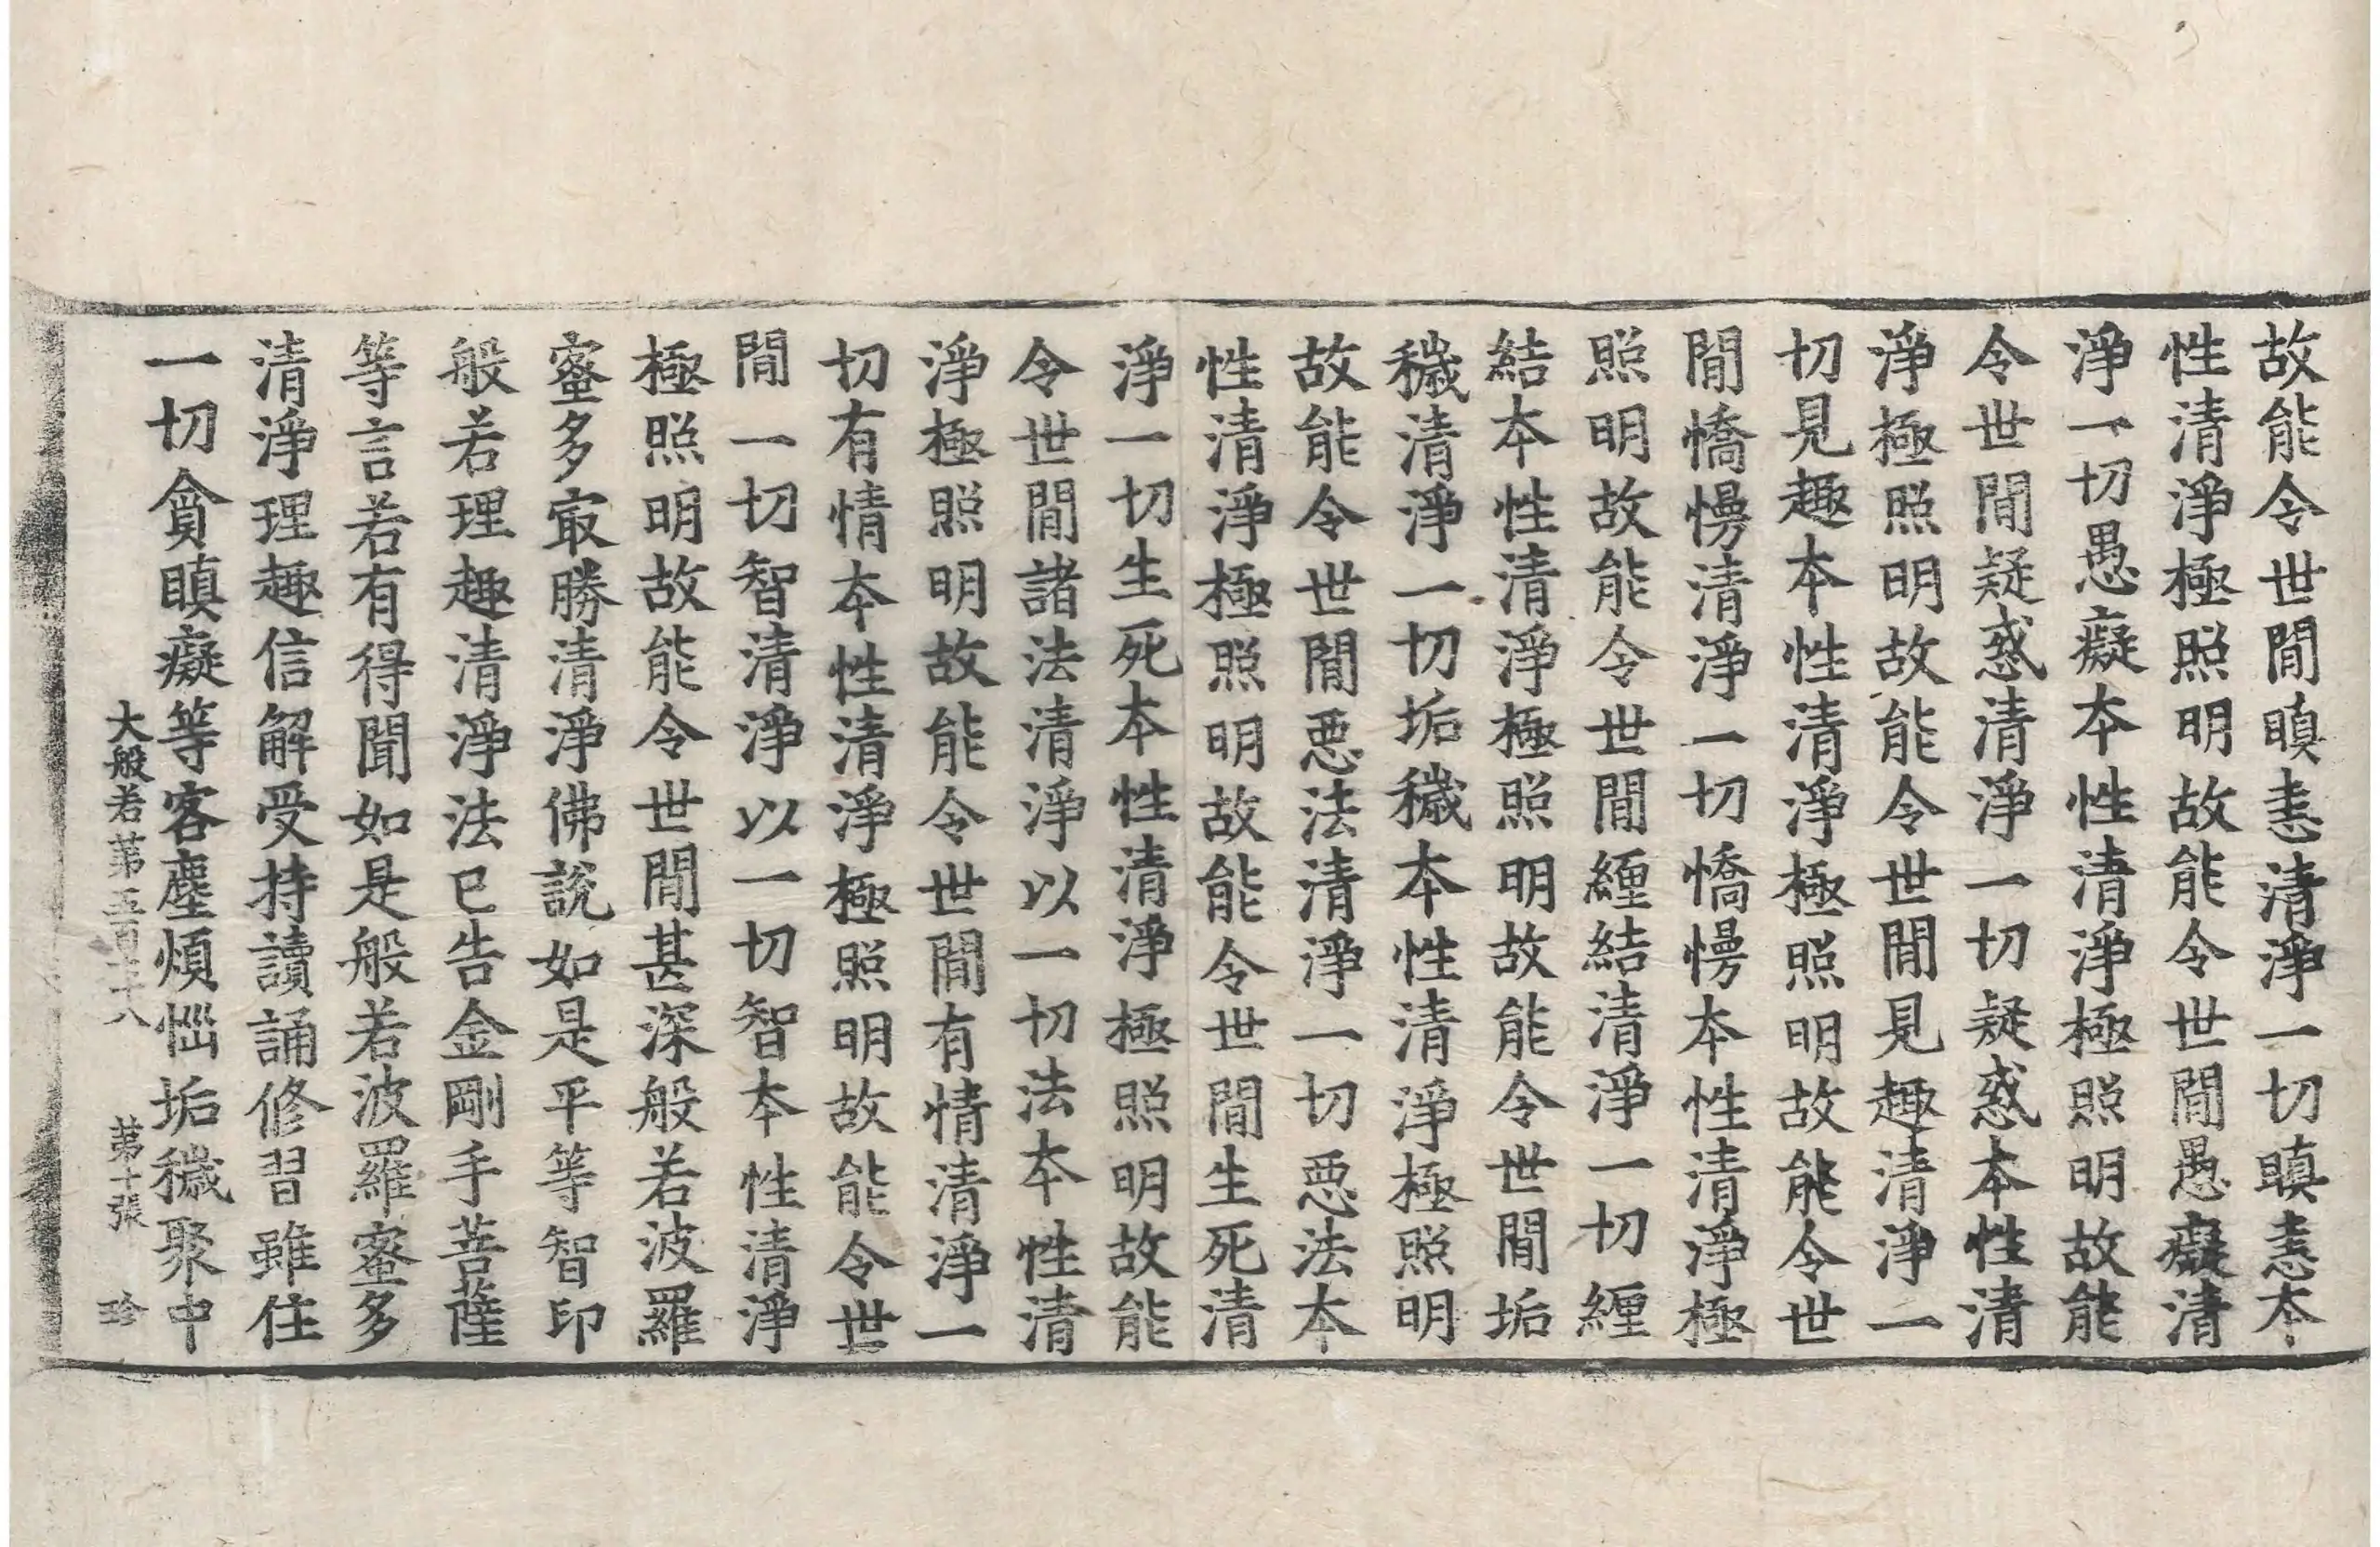 故能令世間瞋恚清淨一切瞋恚本
性清淨極照明故能令世間愚癡清
淨一切愚癡本性清淨極照明故能
令世間疑惑清淨一切疑惑本性清
淨極照明故能令世間見趣清淨一
切見趣本性清淨極照明故能令世
間憍慢清淨一切憍慢本性清淨極
照明故能令世間纏結清淨一切纏
結本性清淨極照明故能令世間垢
穢清淨一切垢穢本性清淨極照明
故能令世間惡法清淨一切惡法本
性清淨極照明故能令世間生死清
淨一切生死本性清淨極照明故能
令世間諸法清淨以一切法本性清
淨極照明故能令世間有情清淨一
切有情本性清淨極照明故能令世
間一切智清淨以一切智本性清淨
極照明故能令世間甚深般若波羅
蜜多㝡勝清淨佛說如是平等智印
般若理趣清淨法已告金剛手菩薩
等言若有得聞如是般若波羅蜜多
清淨理趣信解受持讀誦修習雖住
一切貪瞋癡等客塵煩惱垢穢聚中
大般若第五百七十八 第十張 珍